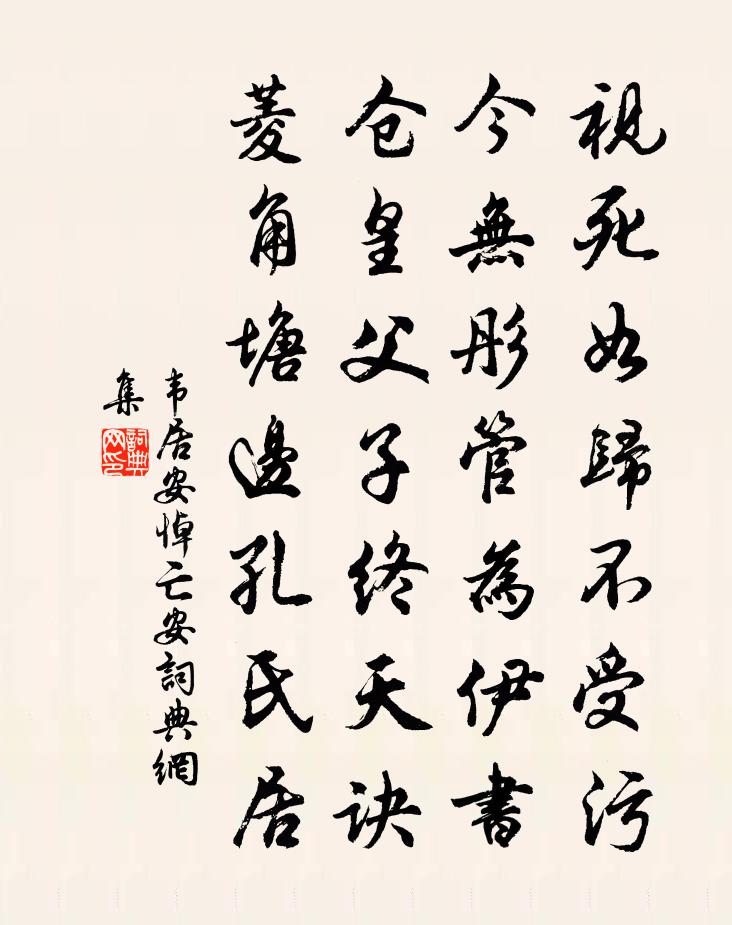 視死如歸不受污
今無彤管為伊書
仓皇父子終天訣
菱角塘邊孔氏居
韦居安悼亡安詞典網
集
詞典網印